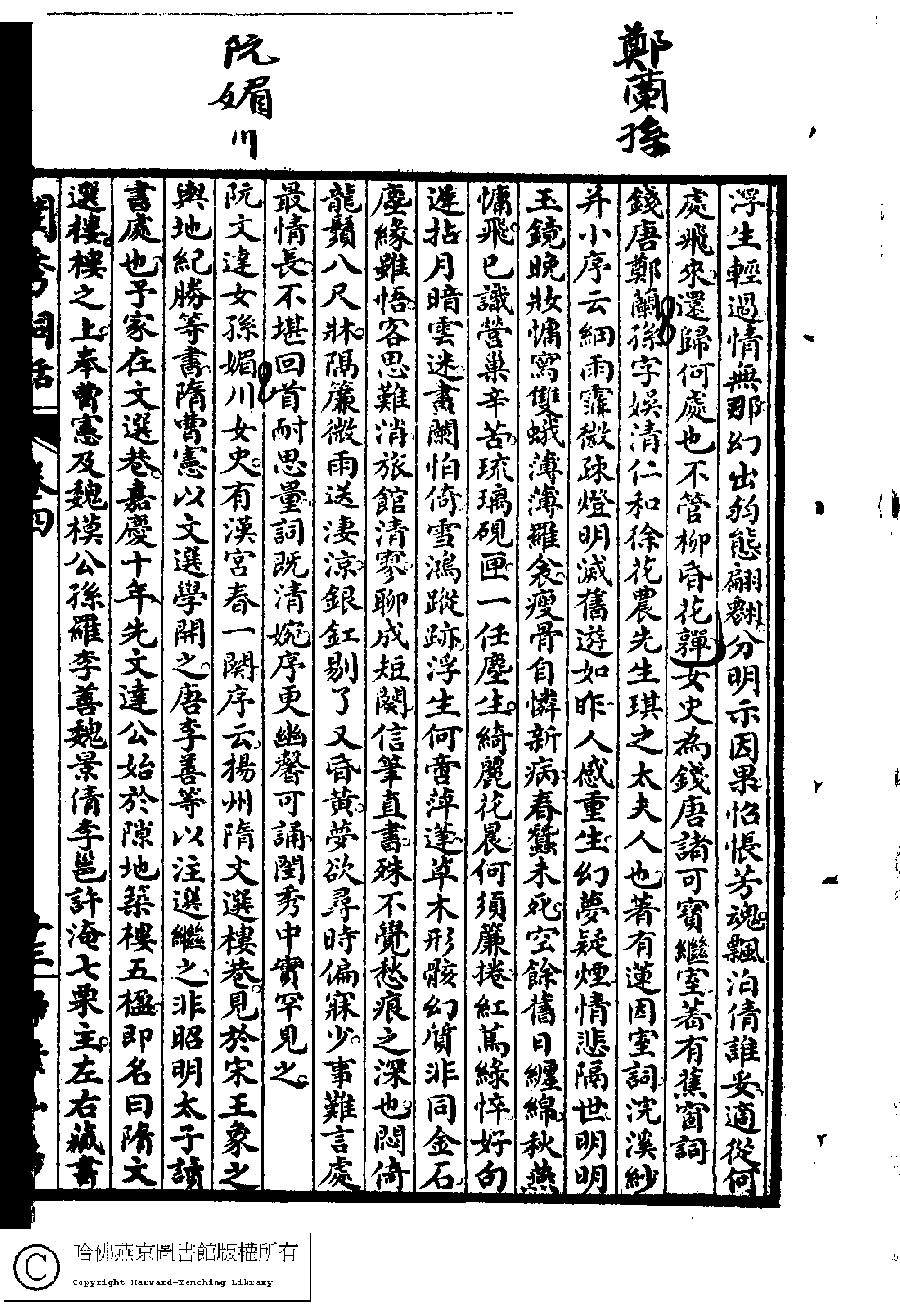 鄭蘭孫
阮媚川
浮生輕過情無那幻出豹態翩翻分明示因果怊悵芳魂飄泊倩誰妥適從何
處飛來還歸何處也不管柳昏花嚲女史為錢唐諸可寶繼室著有蕉窗詞
錢唐鄭蘭孫字娛清仁和徐花農先生琪之太夫人也著有蓮因室詞浣溪紗
并小序云細雨霏微疎燈明滅舊遊如昨人感重生幻夢疑煙情悲隔世明明
玉鏡晚妝慵寫雙蛾薄薄羅衾瘦骨自憐新病春蠶未死空餘舊日纏綿秋燕
慵飛已識營巢辛苦琉璃硯匣一任塵生綺麗花晨何須簾捲紅蔫綠悴好句
遲拈月暗雲迷畫闌怕倚雪鴻蹤跡浮生何啻萍蓬草木形骸幻質非同金石
塵緣雖悟客思難消旅館清寥聊成短闋信筆直書殊不覺愁痕之深也悶倚
龍鬚八尺牀隔簾微雨送淒涼銀釭剔了又昏黃夢欲尋時偏寐少事難言處
最情長不堪回首耐思量詞既清婉序更幽馨可誦閨秀中實罕見之
阮文達女孫媚川女史有漢宮春一闋序云揚州隋文選樓巷見於宋王象之
輿地紀勝等書隋曹憲以文選學開之唐李善等以注選繼之非昭明太子讀
書處也予家在文選巷嘉慶十年先文達公始於隙地築樓五楹即名曰隋文
選樓樓之上奉曹憲及魏模公孫羅李善魏景倩李邕許淹七栗主左右藏書
閨秀詞話 卷四
哈佛燕京圖書館版權所有
Copyright Harvard-Yenching Library